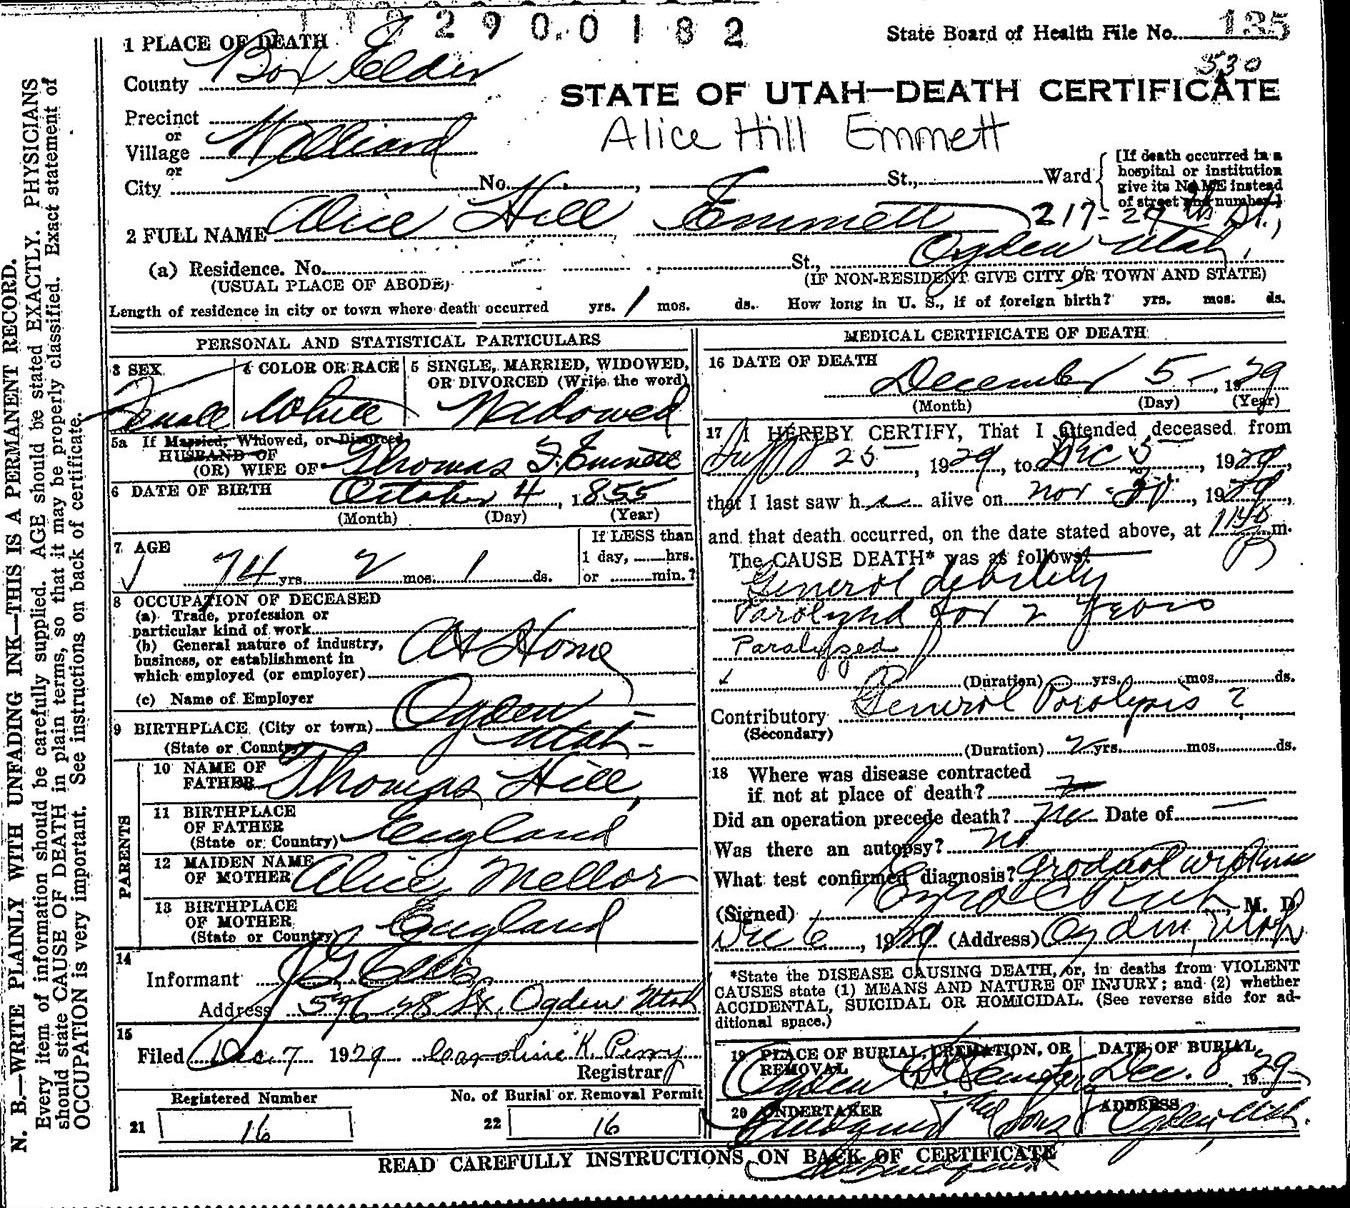 2 9 0 0 1 8 2
State Board of Health File No. 135
530
1 PLACE OF DEATH
County Box Elder
STATE OF UTAH—DEATH CERTIFICATE
Alice Hill Emmett
Precinct
or
Village Willard
or
City No. , St., Ward
[If death occurred in a
hospital or institution
give its NAME instead
of street and number.]
2 FULL NAME Alice Hill Emmett
217-29th St.,
Ogden Utah,
(a) Residence. No. St.,
(USUAL PLACE OF ABODE) (IF NON-RESIDENT GIVE CITY OR TOWN AND STATE)
Length of residence in city or town where death occurred yrs. 1 mos. ds. How long in U. S., if of foreign birth? yrs. mos. ds.
PERSONAL AND STATISTICAL PARTICULARS
3 SEX Female
4 COLOR OR RACE White
5 SINGLE, MARRIED, WIDOWED,
OR DIVORCED (Write the word)
Widowed
5a If Married, Widowed, or Divorced
HUSBAND OF
(OR) WIFE OF Thomas Emmett
6 DATE OF BIRTH October 4, 1855
(Month) (Day) (Year)
7 AGE
74 yrs. 2 mos. 1 ds.
If LESS than
1 day, hrs.
or min.?
8 OCCUPATION OF DECEASED
(a) Trade, profession or
particular kind of work
(b) General nature of industry,
business, or establishment in
which employed (or employer)
At Home
(c) Name of Employer
9 BIRTHPLACE (City or town) Ogden
(State or Country) Utah
PARENTS
10 NAME OF
FATHER Thomas Hill,
11 BIRTHPLACE
OF FATHER
(State or Country) England
12 MAIDEN NAME
OF MOTHER Alice Mellor
13 BIRTHPLACE
OF MOTHER
(State or Country) England
14
Informant J G Ellis
Address 28 St. Ogden Utah
15
Filed Dec. 7 1929 Caroline K. Perry
Registrar
Registered Number
21 16
No. of Burial or Removal Permit
22 16
MEDICAL CERTIFICATE OF DEATH
16 DATE OF DEATH
December 5 — , 1929
(Month) (Day) (Year)
17 I HEREBY CERTIFY, That I attended deceased from
25, 1929, to Dec 5, 1929,
that I last saw her alive on Nov , 1929,
and that death occurred, on the date stated above, at m.
The CAUSE DEATH* was as follows:
General debility
Paralyzed for 2 years
Paralyzed
(Duration) yrs. mos. ds.
Contributory General Paralysis ?
(Secondary)
(Duration) 2 yrs. mos. ds.
18 Where was disease contracted
if not at place of death?
Did an operation precede death? no Date of
Was there an autopsy? no
What test confirmed diagnosis? gradual
(Signed) Ezra C Rich, M. D.
Dec 6, 1929 (Address) Ogden, Utah
*State the DISEASE CAUSING DEATH, or, in deaths from VIOLENT
CAUSES state (1) MEANS AND NATURE OF INJURY; and (2) whether
ACCIDENTAL, SUICIDAL OR HOMICIDAL. (See reverse side for ad-
ditional space.)
19 PLACE OF BURIAL, CREMATION, OR
REMOVAL
Ogden Cemetery
DATE OF BURIAL
Dec. 8 1929
20 UNDERTAKER
Lindquist Sons
ADDRESS
Ogden, Utah.
READ CAREFULLY INSTRUCTIONS ON BACK OF CERTIFICATE
N. B.—WRITE PLAINLY WITH UNFADING INK—THIS IS A PERMANENT RECORD.
Every item of information should be carefully supplied. AGE should be stated EXACTLY. PHYSICIANS
should state CAUSE OF DEATH in plain terms, so that it may be properly classified. Exact statement of
OCCUPATION is very important. See instructions on back of certificate.